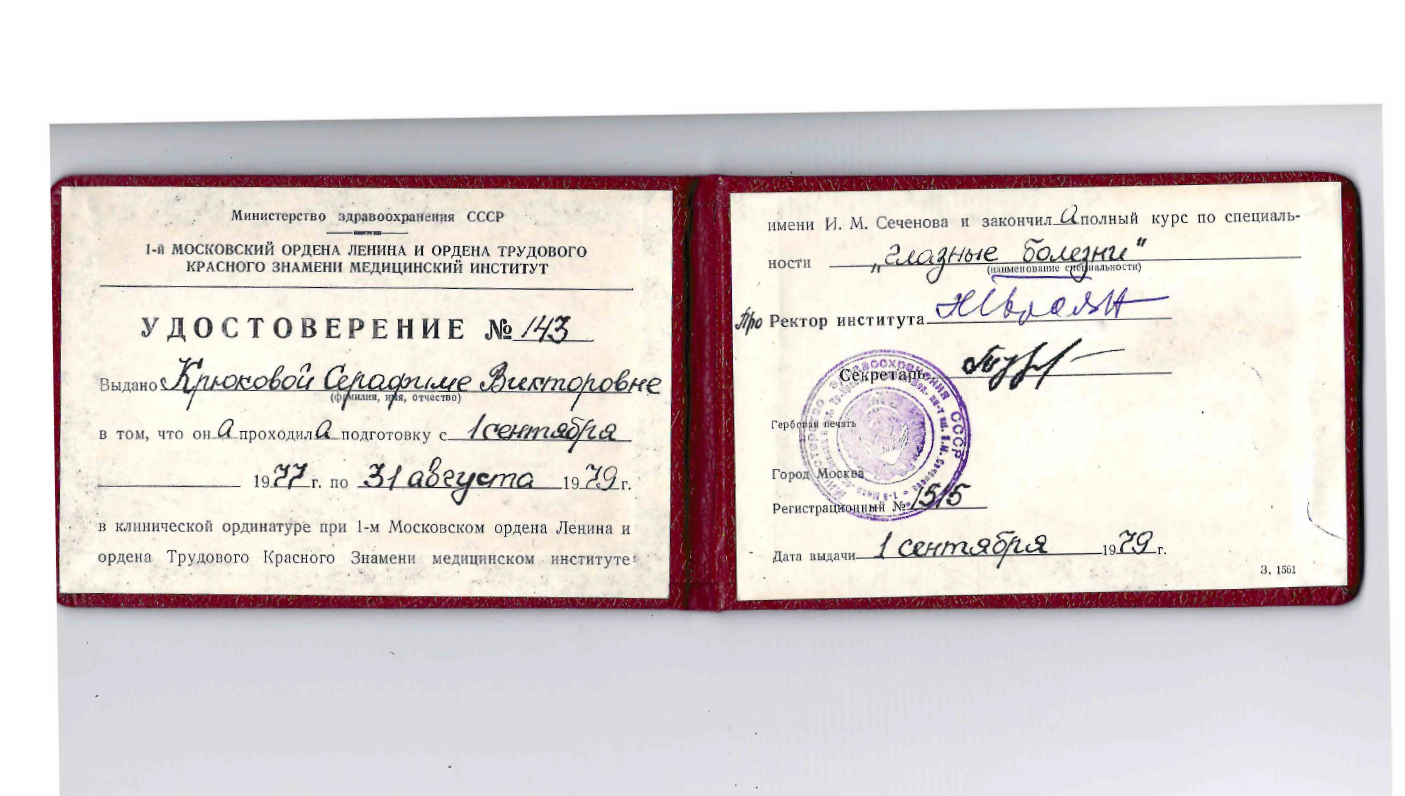 Министерство здравоохранения СССР
1-й МОСКОВСКИЙ ОРДЕНА ЛЕНИНА И ОРДЕНА ТРУДОВОГО
КРАСНОГО ЗНАМЕНИ МЕДИЦИНСКИЙ ИНСТИТУТ
УДОСТОВЕРЕНИЕ № 143
Выдано Крюковой Серафиме Викторовне
(фамилия, имя, отчество)
в том, что он а проходил а подготовку с 1 сентября
1977 г. по 31 августа 1979 г.
в клинической ординатуре при 1-м Московском ордена Ленина и
ордена Трудового Красного Знамени медицинском институте
имени И. М. Сеченова и закончил а полный курс по специаль-
ности „глазные болезни"
(наименование специальности)
Про Ректор института
Секретарь
Гербовая печать
Город Москва
Регистрационный № 1515
Дата выдачи 1 сентября 1979 г.
З. 1561